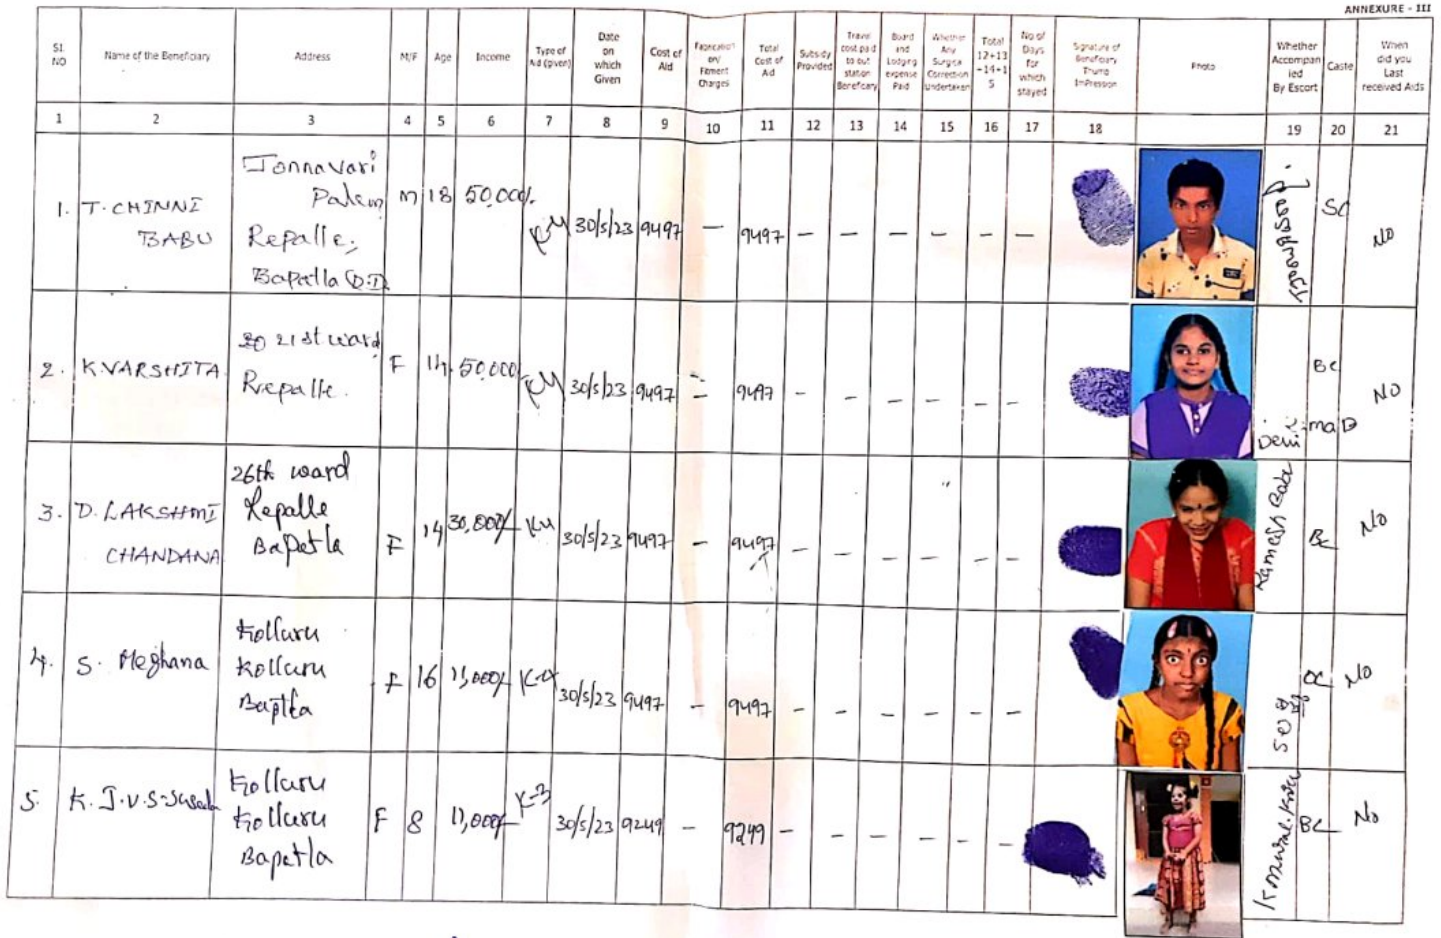 ANNEXURE - III
Sl. NO | Name of the Beneficiary | Address | M/F | Age | Income | Type of Aid (given) | Date on which Given | Cost of Aid | Fabrication on/ Fitment Charges | Total Cost of Aid | Subsidy Provided | Travel cost paid to out station Beneficiary | Board and Lodging expense Paid | Whether Any Surgica Correction Undertaken | Total 12+13 +14+1 5 | No of Days for which stayed | Signature of Beneficiary Thump ImPression | Photo | Whether Accompan ied By Escort | Caste | When did you Last received Aids
1 2 3 4 5 6 7 8 9 10 11 12 13 14 15 16 17 18 19 20 21
1. T. CHINNI BABU | Jonnavari Palem Repalle, Bapatla (D.T) | M | 18 | 50,000/. | 30/5/23 | 9497 | — | 9497 | — | — | — | — | — | — | SC | NO
2. K VARSHITA | 21st ward Repalle. | F | 14 | 50,000 | 30/5/23 | 9497 | — | 9497 | — | — | — | — | — | — | Devi | BC | NO
3. D. LAKSHMI CHANDANA | 26th ward Repalle Bapetla | F | 14 | 30,000/- | K4 | 30/5/23 | 9497 | — | 9497 | — | — | — | — | — | — | Ramesh Babu | BC | No
4. S. Meghana | Kolluru Kolluru Baptla | F | 16 | 11,000/- | K-4 | 30/5/23 | 9497 | — | 9497 | — | — | — | — | — | — | OC | No
5. K. J.V.S. | Kolluru Kolluru Bapetla | F | 8 | 11,000/- | K-3 | 30/5/23 | 9249 | — | 9249 | — | — | — | — | — | — | BC | No